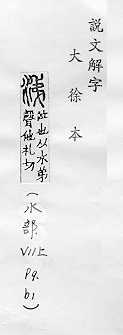 說文解字
大徐本
涕
泣也从水弟
聲他礼切
(水部. VII上 Pg. b1)